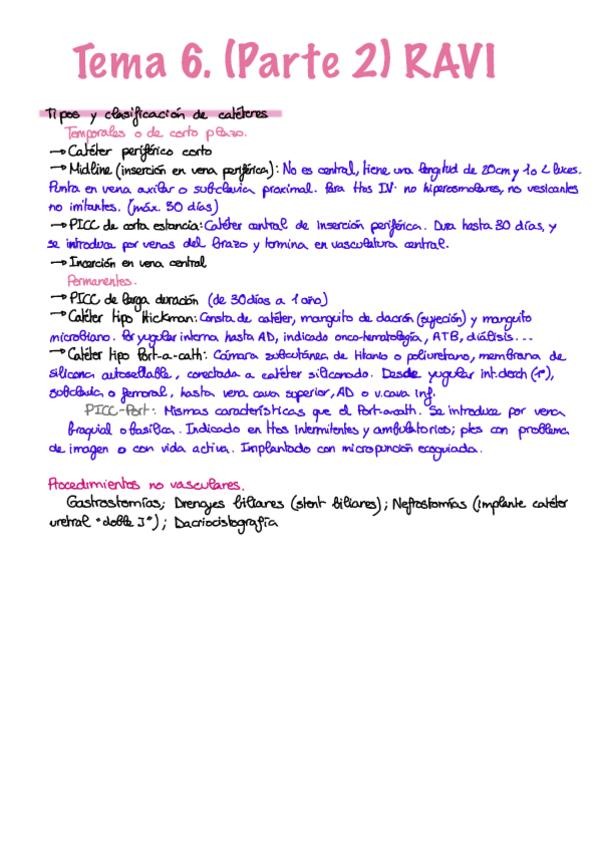 Tema 6. (Parte 2) RAVI
Tipos y clasificación de catéteres
Temporales o de corto plazo.
→ Catéter periférico corto
→ Midline (inserción en vena periférica): No es central, tiene una longitud de 20cm y 1o 2 luces.
Punta en vena axilar o subclavia proximal. Para ttos IV. no hiperosmolares, no vesicantes
no irritantes. (máx. 30 días)
→ PICC de corta estancia: Catéter central de inserción periférica. Dura hasta 30 días, y
se introduce por venas del brazo y termina en vasculatura central.
→ Inserción en vena central
Permanentes.
→ PICC de larga duración (de 30 días a 1 año)
→ Catéter tipo Hickman: Consta de catéter, manguito de dacrón (sujeción) y manguito
microbiano. Por yugular interna hasta AD, indicado onco-hematología, ATB, diálisis...
→ Catéter tipo Port-a-cath: Cámara subcutánea de titanio o poliuretano, membrana de
silicona autosellable, conectada a catéter siliconado. Desde yugular int.derch (1º),
subclavia o femoral, hasta vena cava superior, AD o v.cava inf.
PICC-Port: Mismas características que el Port-a-cath. Se introduce por vena
braquial o basílica. Indicado en ttos intermitentes y ambulatorios; ptes con problema
de imagen o con vida activa. Implantado con micropunción ecoguiada.
Procedimientos no vasculares.
Gastrostomías; Drenajes biliares (stent biliares); Nefrostomías (implante catéter
uretral "doble J"); Dacriocistografía